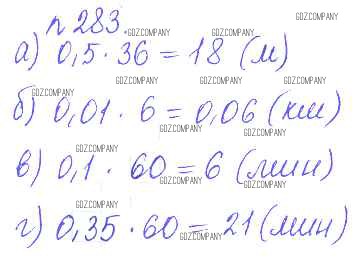 №283.
GDZCOMPANY GDZCOMPANY GDZCOMPANY
а) 0,5 · 36 = 18 (м)
GDZCOMPANY GDZCOMPANY GDZCOMPANY GDZCOMPANY
б) 0,01 · 6 = 0,06 (км)
GDZCOMPANY GDZCOMPANY
GDZCOMPANY
в) 0,1 · 60 = 6 (мин)
GDZCOMPANY GDZCOMPANY
GDZCOMPANY
г) 0,35 · 60 = 21 (мин)
GDZCOMPANY